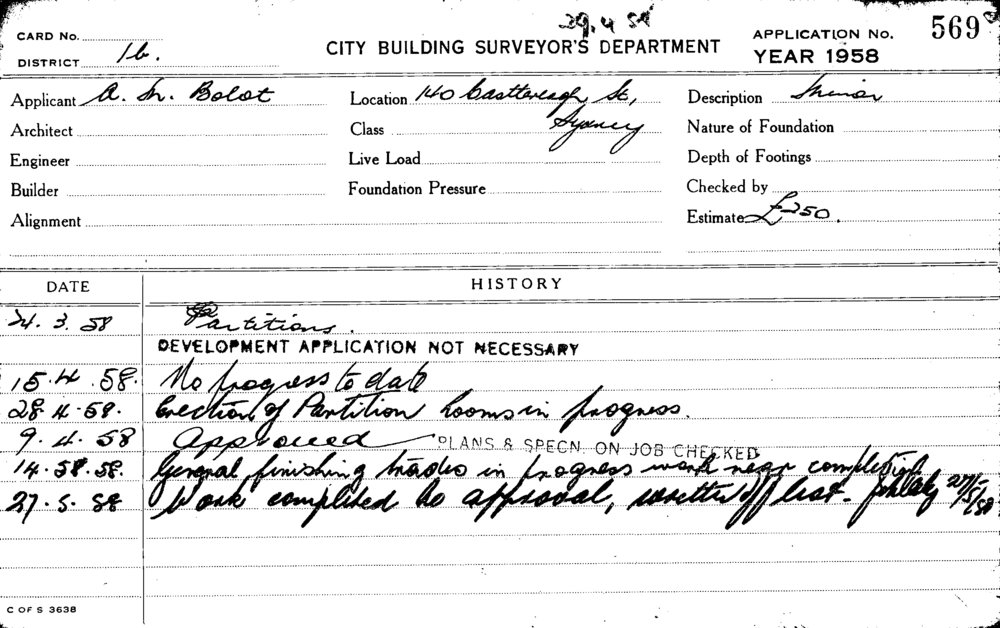 29.4.58
CARD No.
CITY BUILDING SURVEYOR'S DEPARTMENT
APPLICATION No. 569
DISTRICT 16.
YEAR 1958
Applicant A. M. Bolot
Location 140 Castlereagh St,
Sydney
Description Minor
Architect
Class
Nature of Foundation
Engineer
Live Load
Depth of Footings
Builder
Foundation Pressure
Checked by
Alignment
Estimate £250.
DATE HISTORY
24. 3. 58 Partitions.
DEVELOPMENT APPLICATION NOT NECESSARY
15.4.58. No progress to date
28 4.58. Erection of Partition Rooms in progress.
9. 4. 58 Approved PLANS & SPECN. ON JOB CHECKED
14.58.58. General finishing trades in progress work near completion
27. 5. 58 Work completed to approval, written off list. 27/5/58
C OF S 3638